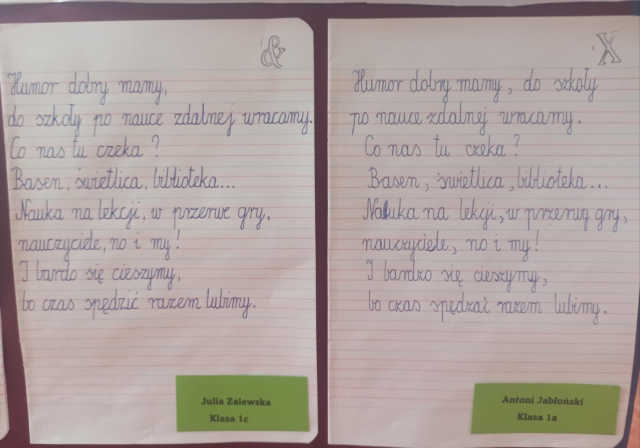 &
Humor dobry mamy,
do szkoły po nauce zdalnej wracamy.
Co nas tu czeka?
Basen, świetlica, biblioteka...
Nauka na lekcji, w przerwe gry,
nauczyciele, no i my!
I bardo się cieszymy,
bo czas spędzić razem lubimy.
Julia Zalewska
Klasa 1c
X
Humor dobry mamy, do szkoły
po nauce zdalnej wracamy.
Co nas tu czeka?
Basen, świetlica, biblioteka...
Nauka na lekcji, w przerwę gry,
nauczyciele, no i my!
I bardzo się cieszymy,
bo czas spędzać razem lubimy.
Antoni Jabłoński
Klasa 1a